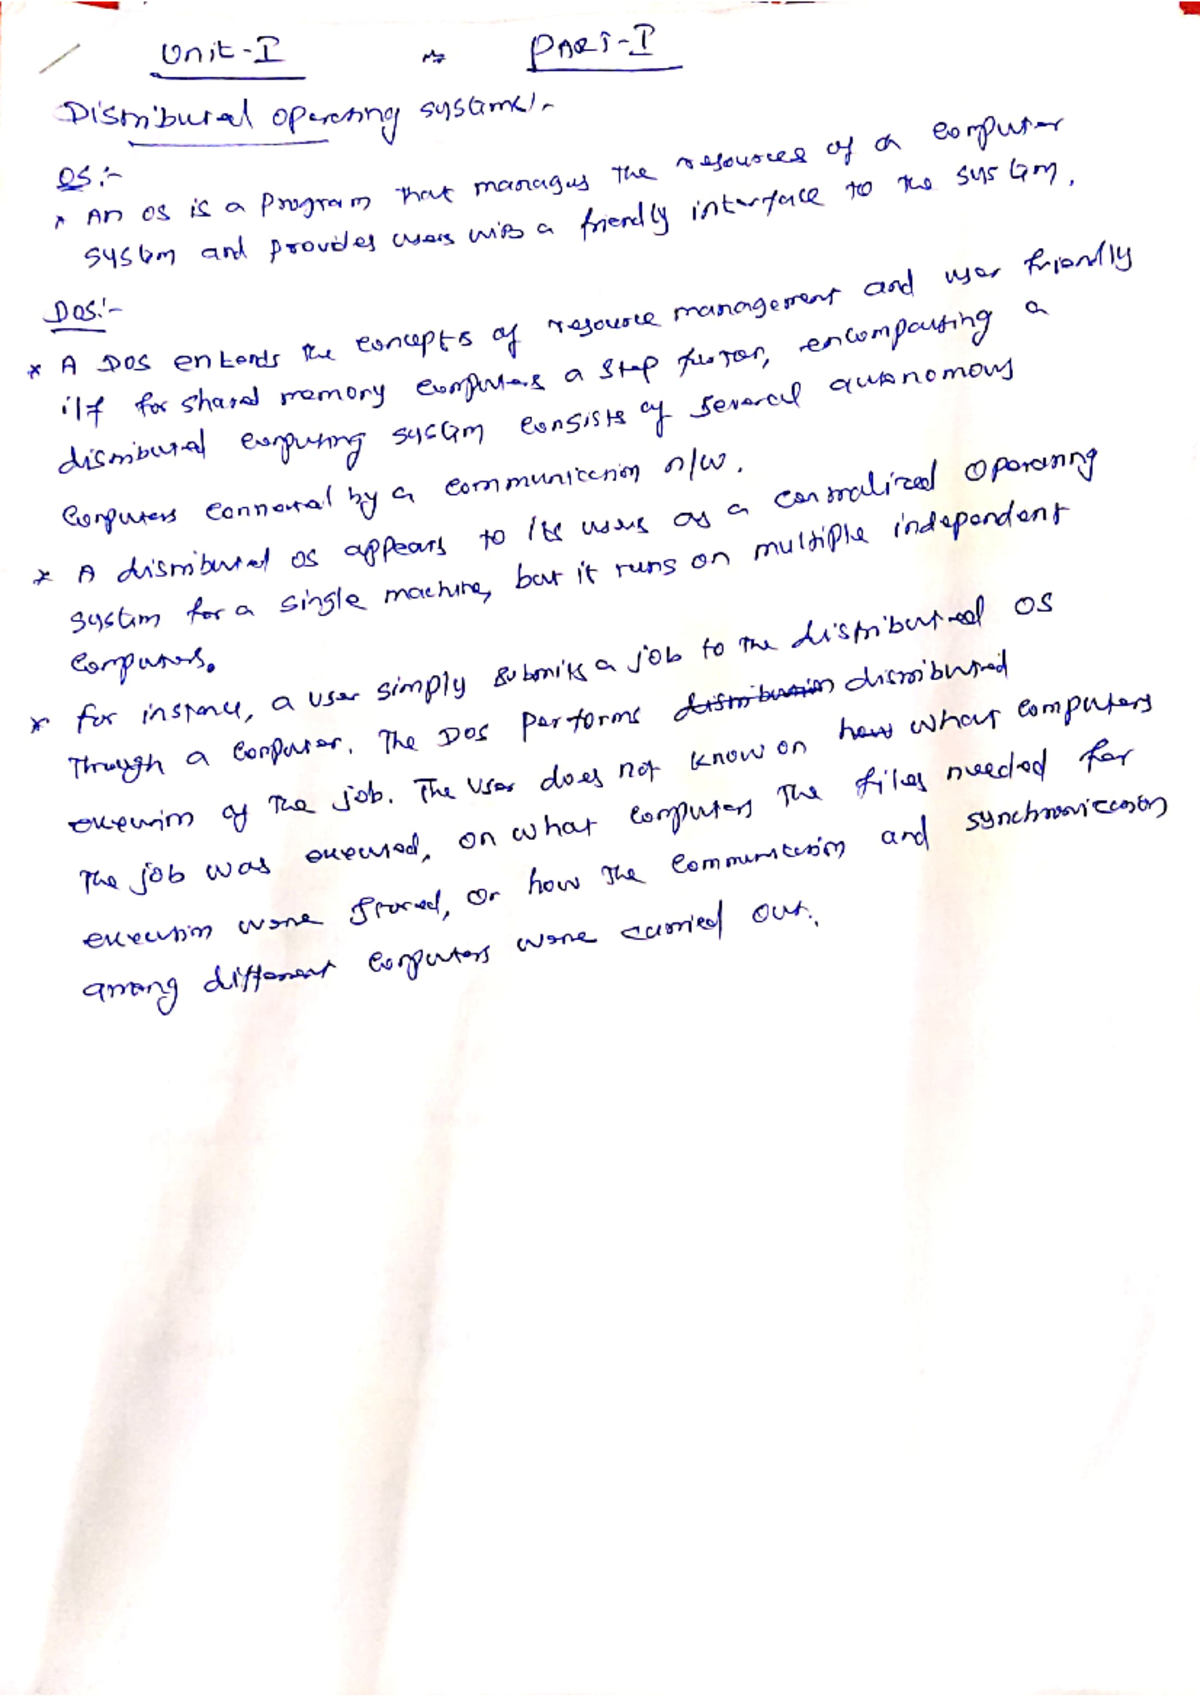 Unit-I PART-I
Distributed operating systems:-
OS:-
* An OS is a program that manages the resources of a computer
system and provides users with a friendly interface to the system.
DOS:-
* A DOS extends the concepts of resource management and user friendly
i/f for shared memory computers a step further, encompassing a
distributed computing system consists of several autonomous
computers connected by a communication n/w.
* A distributed OS appears to its users as a centralized operating
system for a single machine, but it runs on multiple independent
computers.
* for instance, a user simply submits a job to the distributed OS
through a computer. The DOS performs distribution distributed
execution of the job. The user does not know on how what computers
the job was executed, on what computers the files needed for
execution were stored, or how the communication and synchronization
among different computers were carried out.